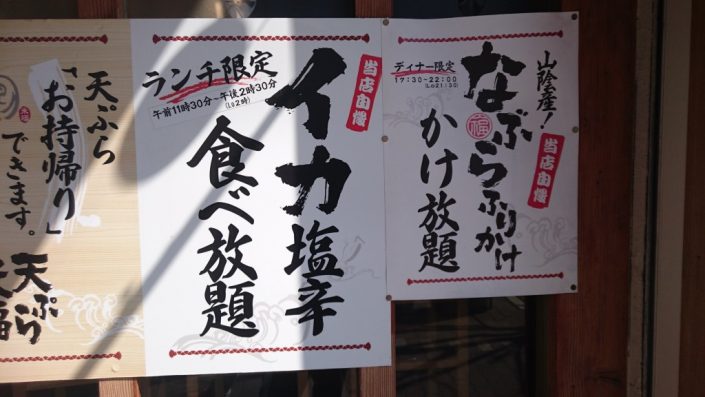 山陰産!
なぶらふりかけ
かけ放題
当店自慢
ディナー限定
17:30-22:00
(Lo21:30)
福
当店自慢
イカ塩辛
食べ放題
ランチ限定
午前11時30分～午後2時30分
(Lo2時)
天ぷら
「お持帰り」
できます。
天ぷら